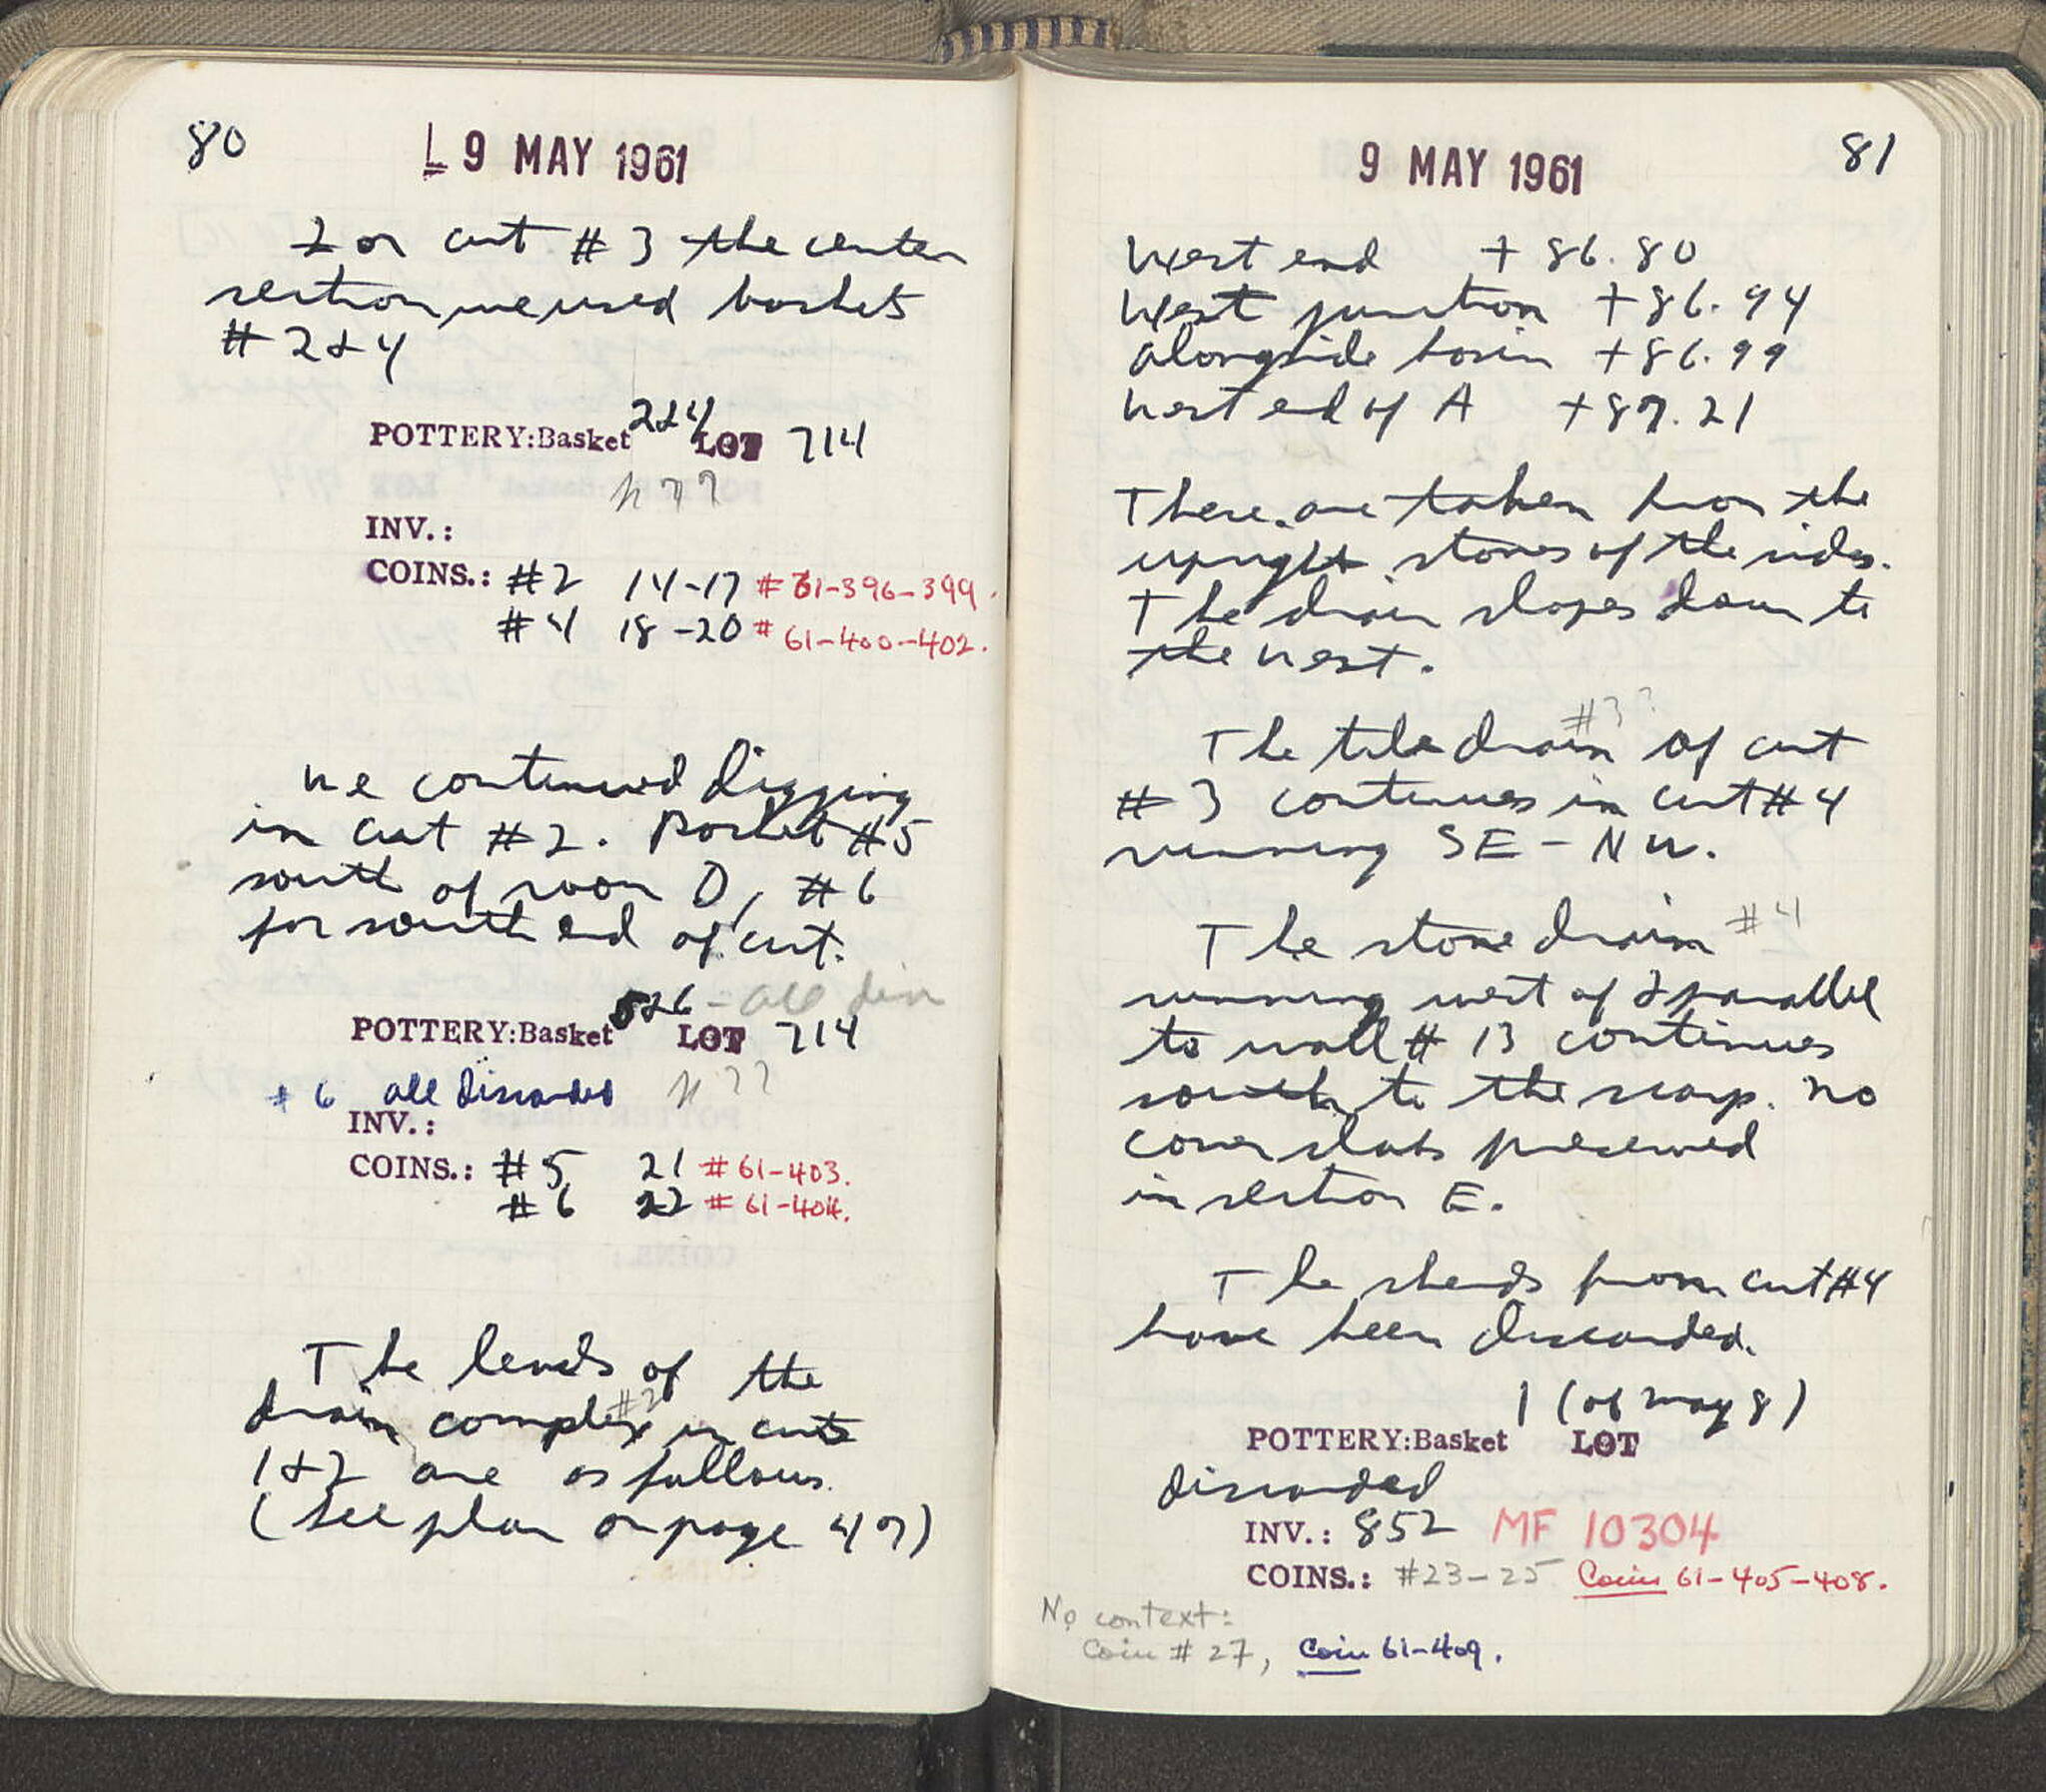 80
9 MAY 1961
For cut #3 the center
section we used baskets
#2 & 4
2&4
POTTERY:Basket LOT 714
INV.:
COINS.: #2 14-17 #61-396-399.
#4 18-20 #61-400-402.
We continued digging
in cut #2. Basket #5
south of room D, #6
for south end of cut.
5&6 - all dis
POTTERY:Basket LOT 714
#6 all discarded
INV.:
COINS.: #5 21 #61-403.
#6 22 #61-404.
The levels of the
#2
drain complex in cuts
1&2 are as follows.
(see plan on page 47)
9 MAY 1961
81
West end +86.80
West junction +86.94
alongside basin +86.99
West end of A +87.21
These are taken from the
upright stones of the sides.
The drain slopes down to
the west.
#3?
The tile drain of cut
#3 continues in cut #4
running SE-NW.
The stone drain #4
running west of & parallel
to wall #13 continues
south to the scarp. No
cover slabs preserved
in section E.
The sherds from cut #4
have been discarded.
1 (of May 8)
POTTERY:Basket LOT
discarded
INV.: 852 MF 10304
COINS.: #23-25 Coins 61-405-408.
No context:
Coin #27, Coin 61-409.